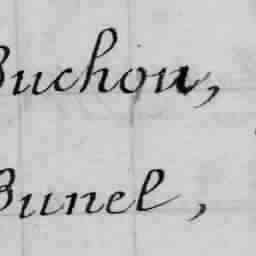 Buchon,
Bunel,